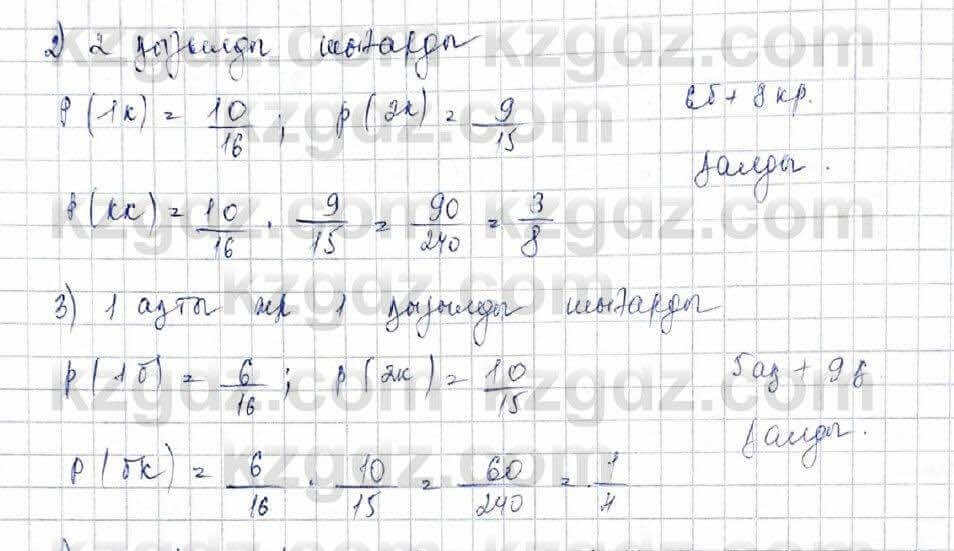 2) 2 қызылды шығарды
P(1к) = 10/16 ; p(2к) = 9/15
6б + 8 кр.
қалды.
P(кк) = 10/16 · 9/15 = 90/240 = 3/8
3) 1 ақты 1 қызылды шығарды
p(1б) = 6/16 ; p(2к) = 10/15
5 ақ + 9 қ
қалды.
p(бк) = 6/16 · 10/15 = 60/240 = 1/4
kzgdz.com